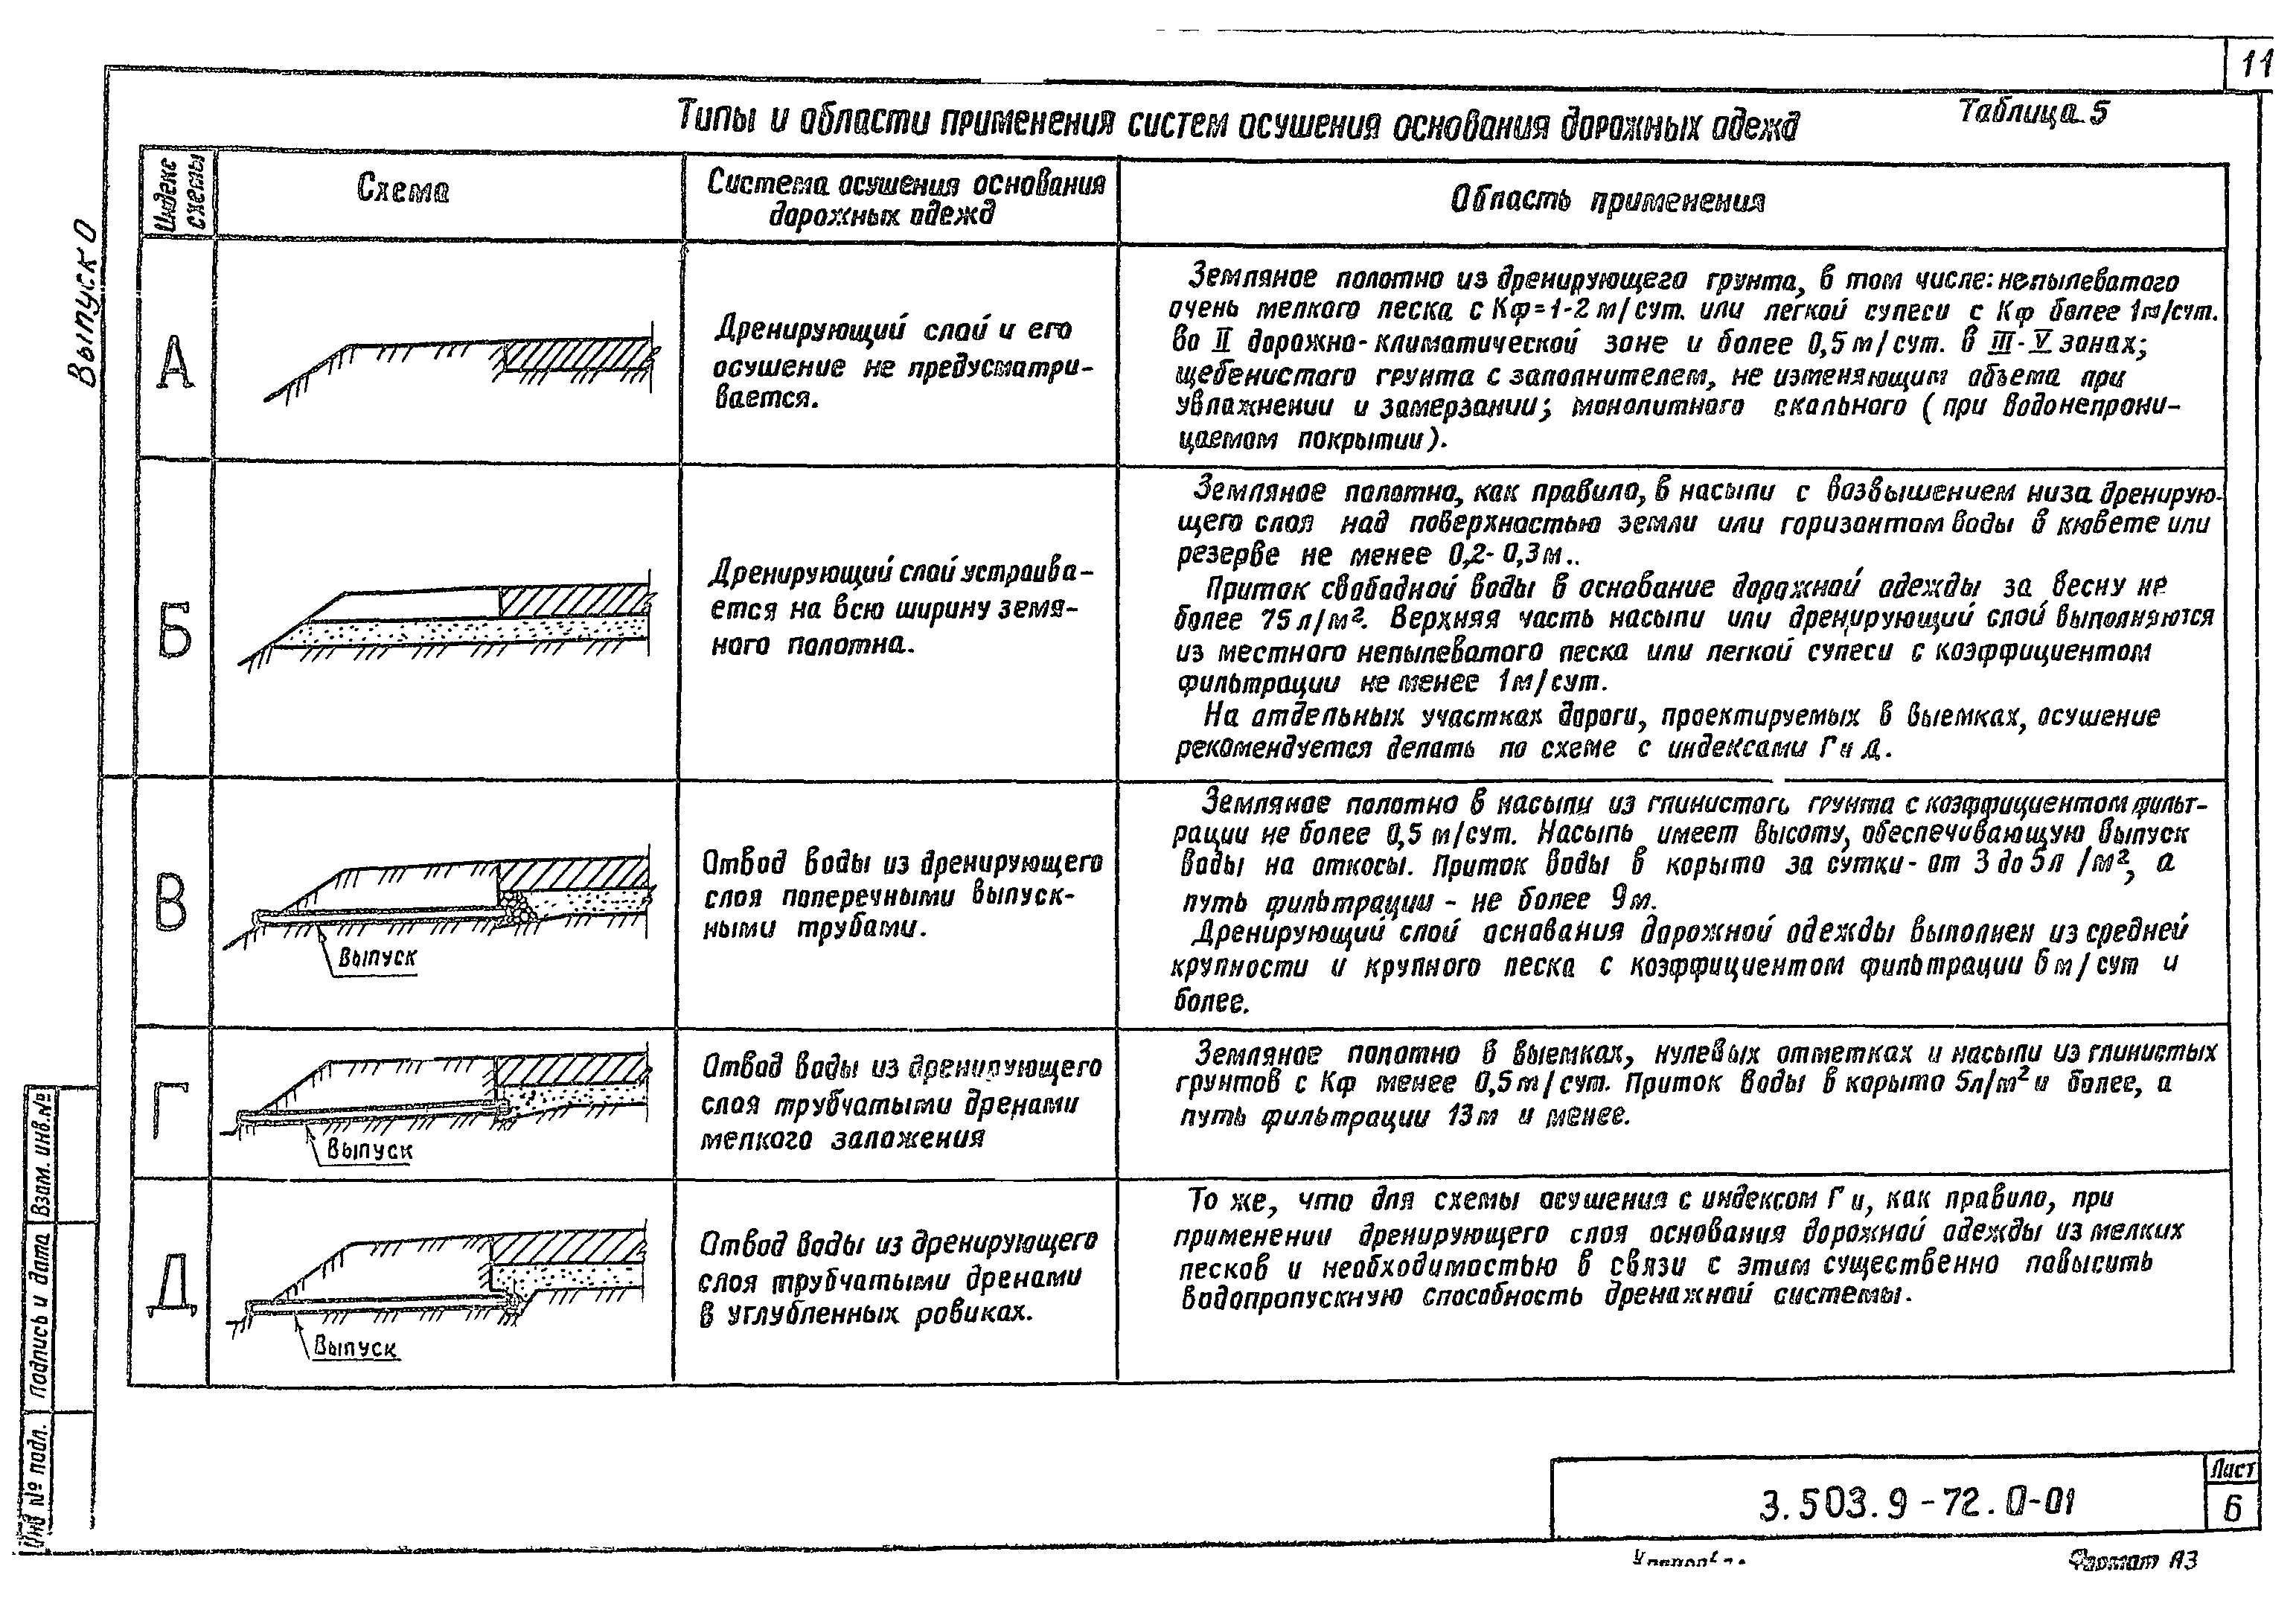 11
Типы и области применения систем осушения основания дорожных одежд
Таблица 5
Выпуск 0
Индекс схемы
Схема
Система осушения основания
дорожных одежд
Область применения
А
Дренирующий слой и его
осушение не предусматри-
вается.
Земляное полотно из дренирующего грунта, в том числе: непылеватого
очень мелкого песка с Кф=1-2 м/сут. или легкой супеси с Кф более 1м/сут.
во II дорожно-климатической зоне и более 0,5 м/сут. в III-V зонах;
щебенистого грунта с заполнителем, не изменяющим объема при
увлажнении и замерзании; монолитного скального (при водонепрони-
цаемом покрытии).
Б
Дренирующий слой устраива-
ется на всю ширину земя-
ного полотна.
Земляное полотно, как правило, в насыпи с возвышением низа дренирую-
щего слоя над поверхностью земли или горизонтом воды в кювете или
резерве не менее 0,2-0,3м..
Приток свободной воды в основание дорожной одежды за весну не
более 75 л/м². Верхняя часть насыпи или дренирующий слой выполняются
из местного непылеватого песка или легкой супеси с коэффициентом
фильтрации не менее 1м/сут.
На отдельных участках дороги, проектируемых в выемках, осушение
рекомендуется делать по схеме с индексами Г и Д.
В
Выпуск
Отвод воды из дренирующего
слоя поперечными выпуск-
ными трубами.
Земляное полотно в насыпи из глинистого грунта с коэффициентом фильт-
рации не более 0,5 м/сут. Насыпь имеет высоту, обеспечивающую выпуск
воды на откосы. Приток воды в корыто за сутки - от 3 до 5л /м², а
путь фильтрации - не более 9м.
Дренирующий слой основания дорожной одежды выполнен из средней
крупности и крупного песка с коэффициентом фильтрации 6м/сут и
более.
Г
Выпуск
Отвод воды из дренирующего
слоя трубчатыми дренами
мелкого заложения
Земляное полотно в выемках, нулевых отметках и насыпи из глинистых
грунтов с Кф менее 0,5м/сут. Приток воды в корыто 5л/м² и более, а
путь фильтрации 13м и менее.
Д
Выпуск
Отвод воды из дренирующего
слоя трубчатыми дренами
в углубленных ровиках.
То же, что для схемы осушения с индексом Г и, как правило, при
применении дренирующего слоя основания дорожной одежды из мелких
песков и необходимостью в связи с этим существенно повысить
водопропускную способность дренажной системы.
Взам. инв. №
Подпись и дата
Инв № подл.
3.503.9-72.0-01
Лист
6
Формат А3